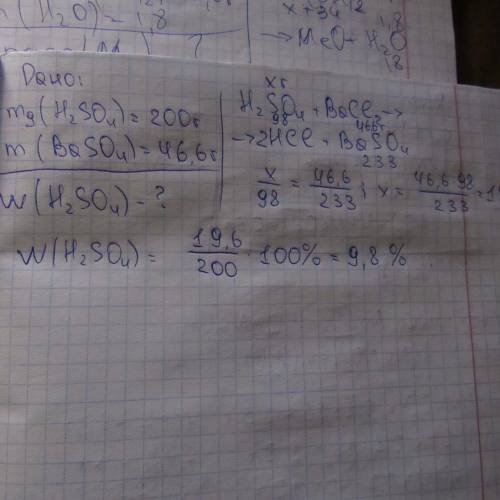 (H₂O) = 1,8
x+34 1,8
→ MeO + H₂O
1,8
Дано:
mg(H₂SO₄) = 200г
m(BaSO₄) = 46,6г
W(H₂SO₄) - ?
xг
H₂SO₄ + BaCl₂ →
98 46,6г
→ 2HCl + BaSO₄
233
x/98 = 46,6/233; x = 46,6·98/233
W(H₂SO₄) = 19,6/200 · 100% = 9,8 %